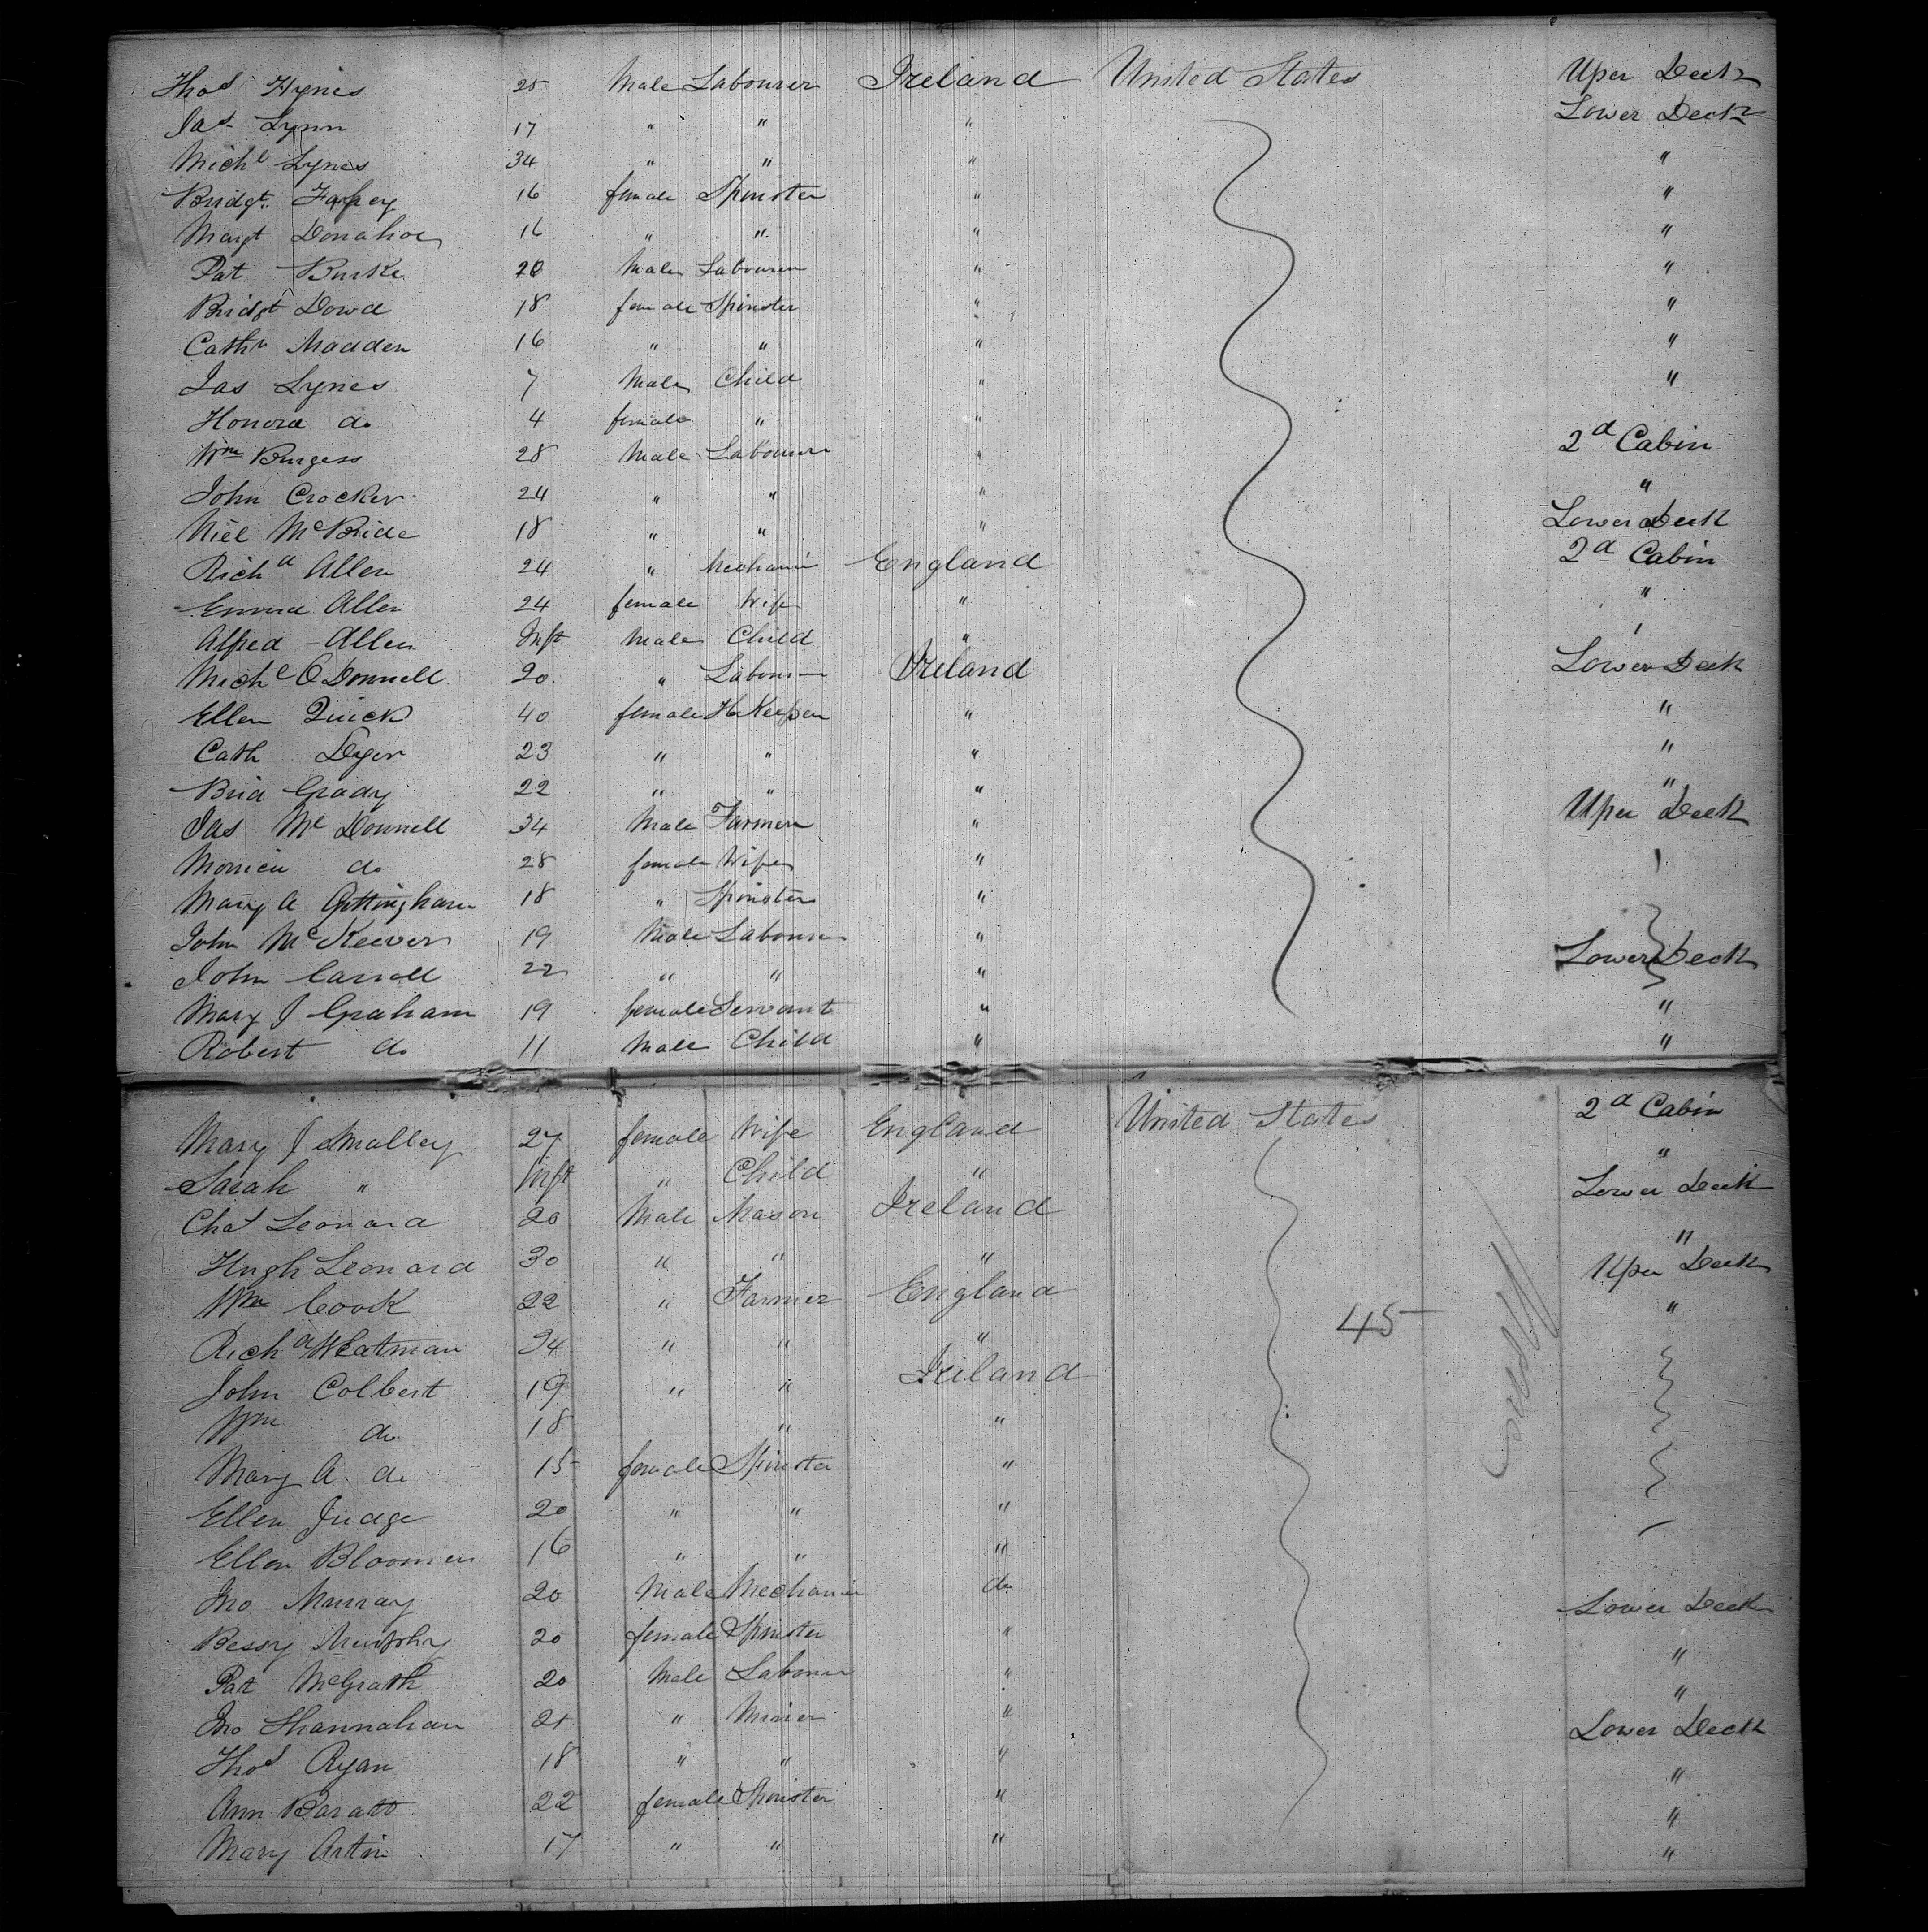 Thos Hynes 25 Male Labourer Ireland United States Uper Deck
Jas Lynn 17 " " " Lower Deck
Michl Lynes 34 " " " "
Bridgt Fahey 16 female Spinster " "
Margt Donahoe 16 " " " "
Pat Burke 20 Male Labourer " "
Bridgt Dowd 18 female Spinster " "
Cathn Madden 16 " " " "
Jas Lynes 7 Male Child " "
Honora do 4 female " "
Wm Burgess 28 Male Labourer " 2d Cabin
John Crocker 24 " " " "
Niel McBride 18 " " " Lower Deck
Richd Allen 24 " Mechanic England 2d Cabin
Emma Allen 24 female Wife " "
Alfred Allen Inft Male Child " '
Michl O Donnell 20 " Labourer Ireland Lower Deck
Ellen Quick 40 female H Keeper " "
Cath Dyer 23 " " " "
Brid Grady 22 " " " "
Jas Mc Donnell 34 Male Farmer " Uper Deck
do 28 female Wife "
Mary A 18 " Spinster "
John McKeever 19 Male Labourer "
John Carroll 22 " " " Lower Deck
Mary J Graham 19 female Servant " "
Robert do 11 Male Child " "
Mary J Smalley 27 female Wife England United States 2d Cabin
Sarah " Inft " Child " "
Chas Leonard 20 Male Mason Ireland Lower Deck
Hugh Leonard 30 " " " "
Wm Cook 22 " Farmer England Uper Deck
Richd 34 " " " "
45
John Colbert 19 " " Ireland
Wm do 18 " "
Mary A do 15 female Spinster "
Ellen Judge 20 " " "
Ellen 16 " " "
Jno Murray 20 Male Mechanic do Lower Deck
Bessy Murphy 20 female Spinster " "
Pat McGrath 20 Male Labourer " "
Jno Shannahan 21 " Miner " Lower Deck
Thos Ryan 18 " " " "
Ann 22 female Spinster " "
Mary 17 " " " "